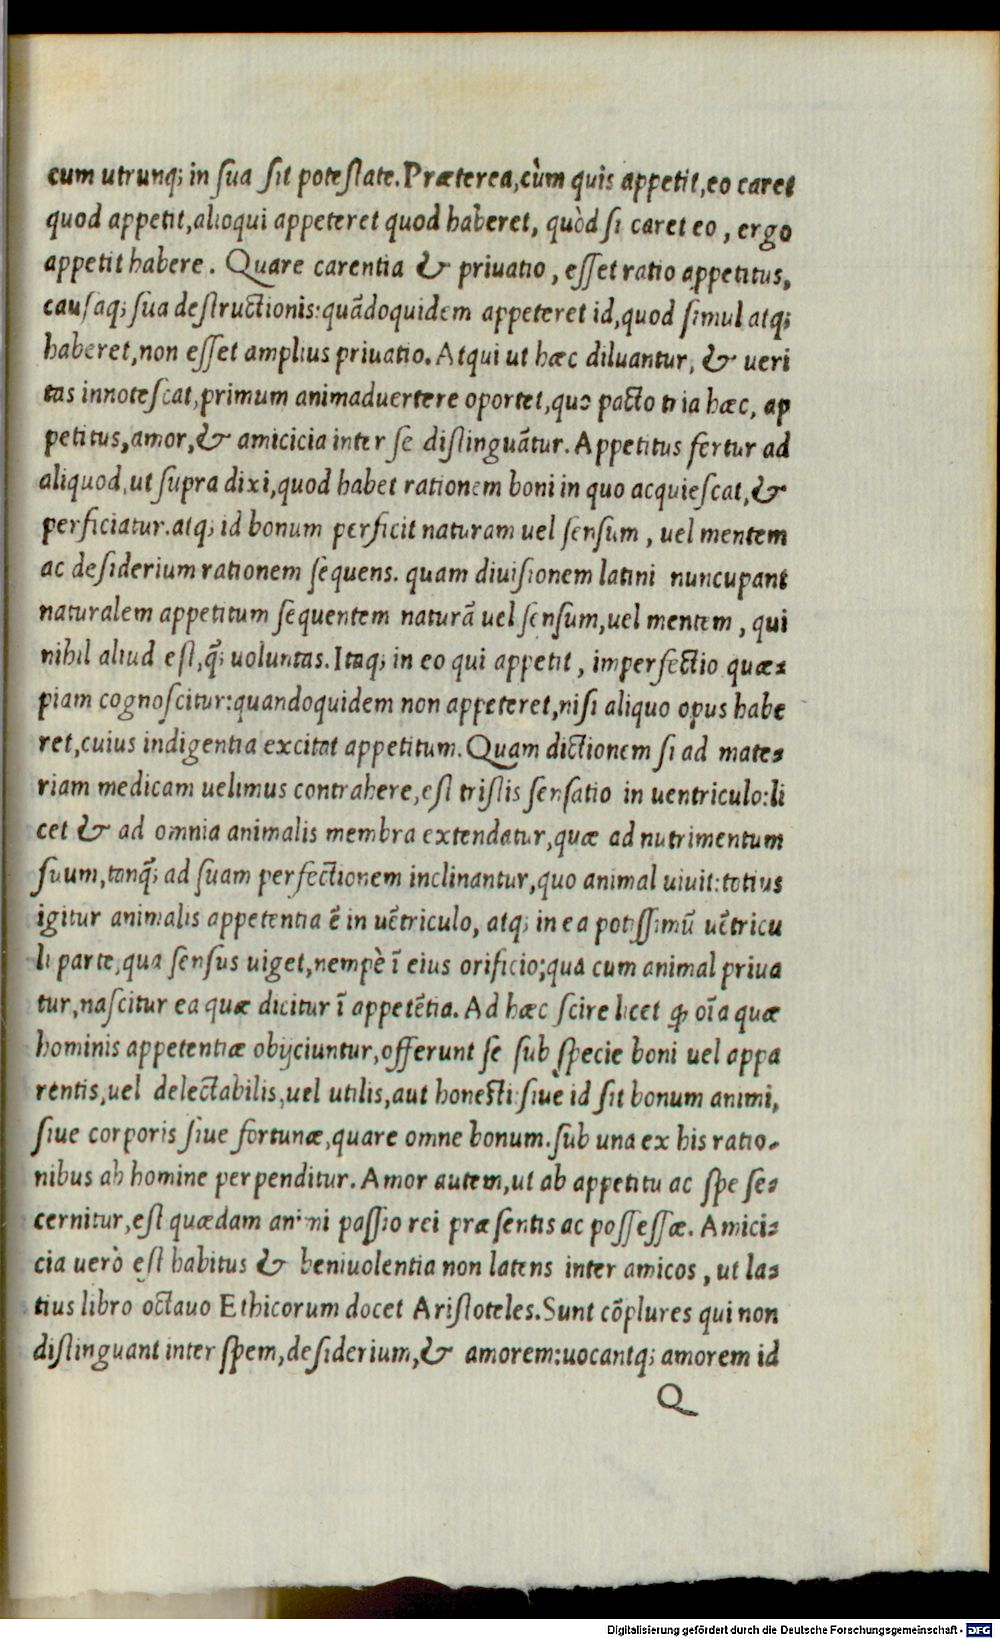 cum utrunq; in sua sit potestate. Præterea, cùm quis appetit, eo caret
quod appetit, alioqui appeteret quod haberet, quòd si caret eo, ergo
appetit habere. Quare carentia & priuatio, esset ratio appetitus,
causaq; sua destructionis: quãdoquidem appeteret id, quod simul atq;
haberet, non esset amplius priuatio. Atqui ut hæc diluantur, & ueri
tas innotescat, primum animaduertere oportet, quo pacto tria hæc, ap
petitus, amor, & amicicia inter se distinguãtur. Appetitus fertur ad
aliquod, ut supra dixi, quod habet rationem boni in quo acquiescat, &
perficiatur. atq; id bonum perficit naturam uel sensum, uel mentem
ac desiderium rationem sequens. quam diuisionem latini nuncupant
naturalem appetitum sequentem naturã uel sensum, uel mentem, qui
nihil aliud est, q̃; uoluntas. Itaq; in eo qui appetit, imperfectio quæ-
piam cognoscitur: quandoquidem non appeteret, nisi aliquo opus habe
ret, cuius indigentia excitat appetitum. Quam dictionem si ad mate-
riam medicam uelimus contrahere, est tristis sensatio in uentriculo: li
cet & ad omnia animalis membra extendatur, quæ ad nutrimentum
suum, tanq̃; ad suam perfectionem inclinantur, quo animal uiuit: totius
igitur animalis appetentia ẽ in uẽtriculo, atq; in ea potissimũ uẽtricu
li parte, qua sensus uiget, nempè ĩ eius orificio; qua cum animal priua
tur, nascitur ea quæ dicitur ĩ appetẽtia. Ad hæc scire licet ꝙ oĩa quæ
hominis appetentiæ obijciuntur, offerunt se sub specie boni uel appa
rentis, uel delectabilis, uel utilis, aut honesti: siue id sit bonum animi,
siue corporis siue fortunæ, quare omne bonum. sub una ex his ratio-
nibus ab homine perpenditur. Amor autem, ut ab appetitu ac spe se-
cernitur, est quædam animi passio rei præsentis ac possessæ. Amici-
cia uerò est habitus & beniuolentia non latens inter amicos, ut la-
tius libro octauo Ethicorum docet Aristoteles. Sunt cõplures qui non
distinguant inter spem, desiderium, & amorem: uocantq; amorem id
Q
Digitalisierung gefördert durch die Deutsche Forschungsgemeinschaft - DFG